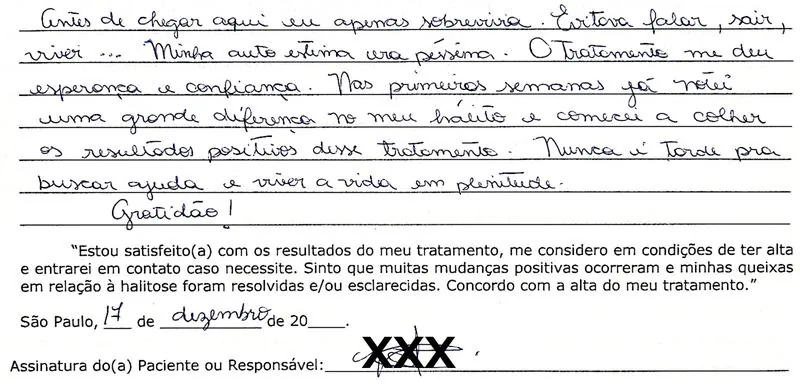 Antes de chegar aqui eu apenas sobrevivia. Evitava falar, sair,
viver ... Minha auto estima era péssima. O Tratamento me deu
esperança e confiança. Nas primeiras semanas já notei
uma grande diferença no meu hálito e comecei a colher
os resultados positivos desse tratamento. Nunca é tarde pra
buscar ajuda e viver a vida em plenitude.
Gratidão!
"Estou satisfeito(a) com os resultados do meu tratamento, me considero em condições de ter alta
e entrarei em contato caso necessite. Sinto que muitas mudanças positivas ocorreram e minhas queixas
em relação à halitose foram resolvidas e/ou esclarecidas. Concordo com a alta do meu tratamento."
São Paulo, 17 de dezembro de 20____.
Assinatura do(a) Paciente ou Responsável: XXX